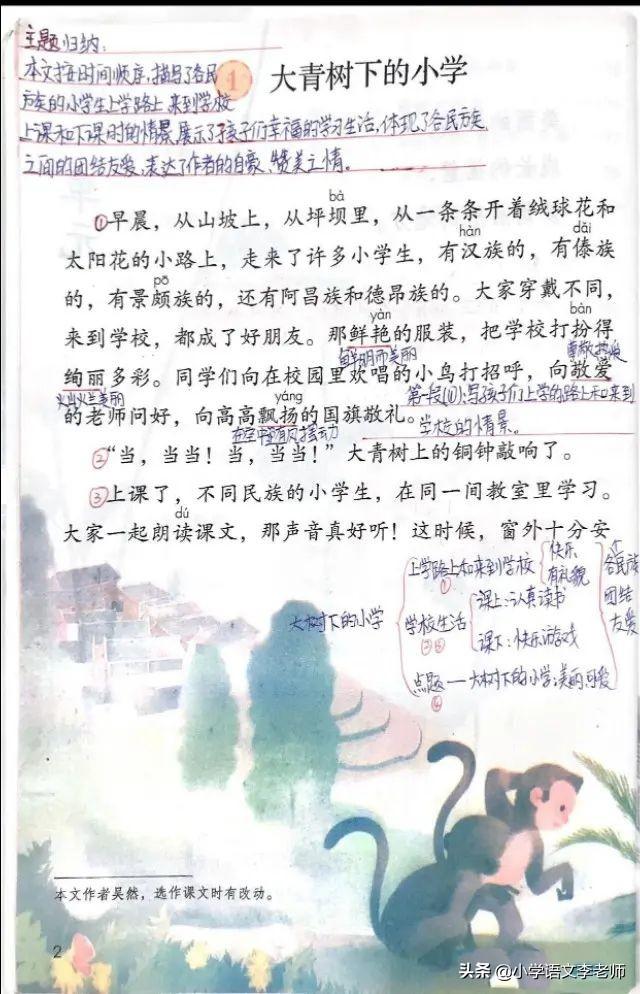 主题归纳:
本文按时间顺序,描写了各民
族的小学生上学路上,来到学校
上课和下课时的情景,展示了孩子们幸福的学习生活,体现了各民族
之间的团结友爱,表达了作者的自豪、赞美之情。
1 大青树下的小学
bà
①早晨，从山坡上，从坪坝里，从一条条开着绒球花和
hàn dǎi
太阳花的小路上，走来了许多小学生，有汉族的，有傣族
pō
的，有景颇族的，还有阿昌族和德昂族的。大家穿戴不同，
yàn bàn
来到学校，都成了好朋友。那鲜艳的服装，把学校打扮得
鲜明而美丽 尊敬热爱
绚丽多彩。同学们向在校园里欢唱的小鸟打招呼，向敬爱
灿烂美丽 yáng 第一段(①):写孩子们上学的路上和来到
的老师问好，向高高飘扬的国旗敬礼。 学校的情景。
在空中随风摆动
②“当，当当！当，当当！”大青树上的铜钟敲响了。
③上课了，不同民族的小学生，在同一间教室里学习。
dú
大家一起朗读课文，那声音真好听！这时候，窗外十分安
上学路上和来到学校 快乐 有礼貌
①
大树下的小学
学校生活 课上:认真读书
②③ 课下:快乐游戏
点题——大树下的小学:美丽、可爱
④
各民族
团结
友爱
本文作者吴然，选作课文时有改动。
2
头条 @小学语文李老师